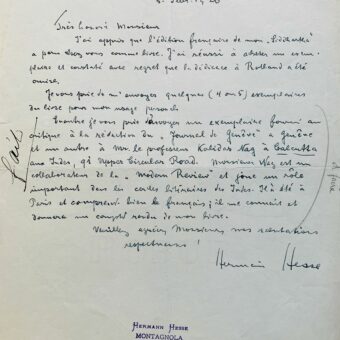 Très honoré Monsieur
J'ai appris que l'édition française de mon „Siddharta"
a paru chez vous comme livre. J'ai réussi à acheter un exem-
plaire et constaté avec regret que la dédicace à Rolland a été
omise.
Je vous prie de m'envoyer quelques (4 ou 5) exemplaires
du livre pour mon usage personel.
Ensuite je vous prie envoyer un exemplaire fourni au
critique à la rédaction du „Journal de Genève" à Genève
et un autre à Mr. le professeur Kalidas Nag à Calcutta
aux Indes, 91 Upper Circular Road. Monsieur Nag est un
collaborateur de la „Modern Review" et joue un rôle
important dans les cercles littéraires des Indes. Il a été à
Paris et comprend bien le français; il me connait et
donnera un compte rendu de mon livre.
Veuillez agréer, Monsieur, mes salutations
respectueuses!
Hermann Hesse
fait
à faire
HERMANN HESSE
MONTAGNOLA